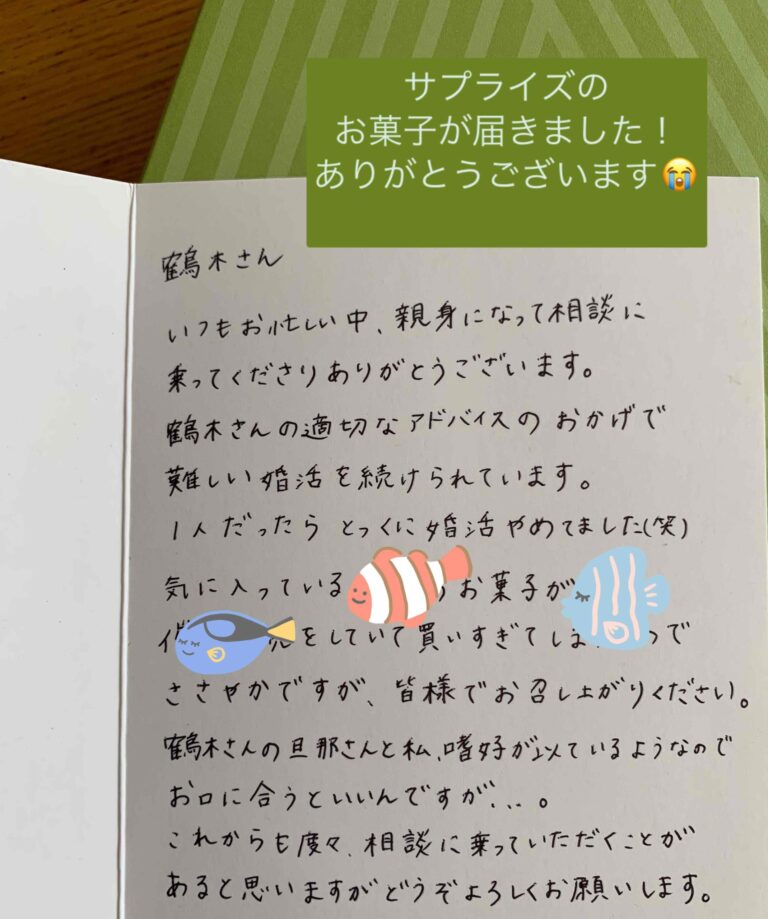 サプライズの
お菓子が届きました！
ありがとうございます😭
鶴木さん
いつもお忙しい中、親身になって相談に
乗ってくださりありがとうございます。
鶴木さんの適切なアドバイスのおかげで
難しい婚活を続けられています。
1人だったらとっくに婚活やめてました(笑)
気に入っている お菓子が
をしていて買いすぎてしま ので
ささやかですが、皆様でお召し上がりください。
鶴木さんの旦那さんと私、嗜好が似ているようなので
お口に合うといいんですが...。
これからも度々、相談に乗っていただくことが
あると思いますがどうぞよろしくお願いします。